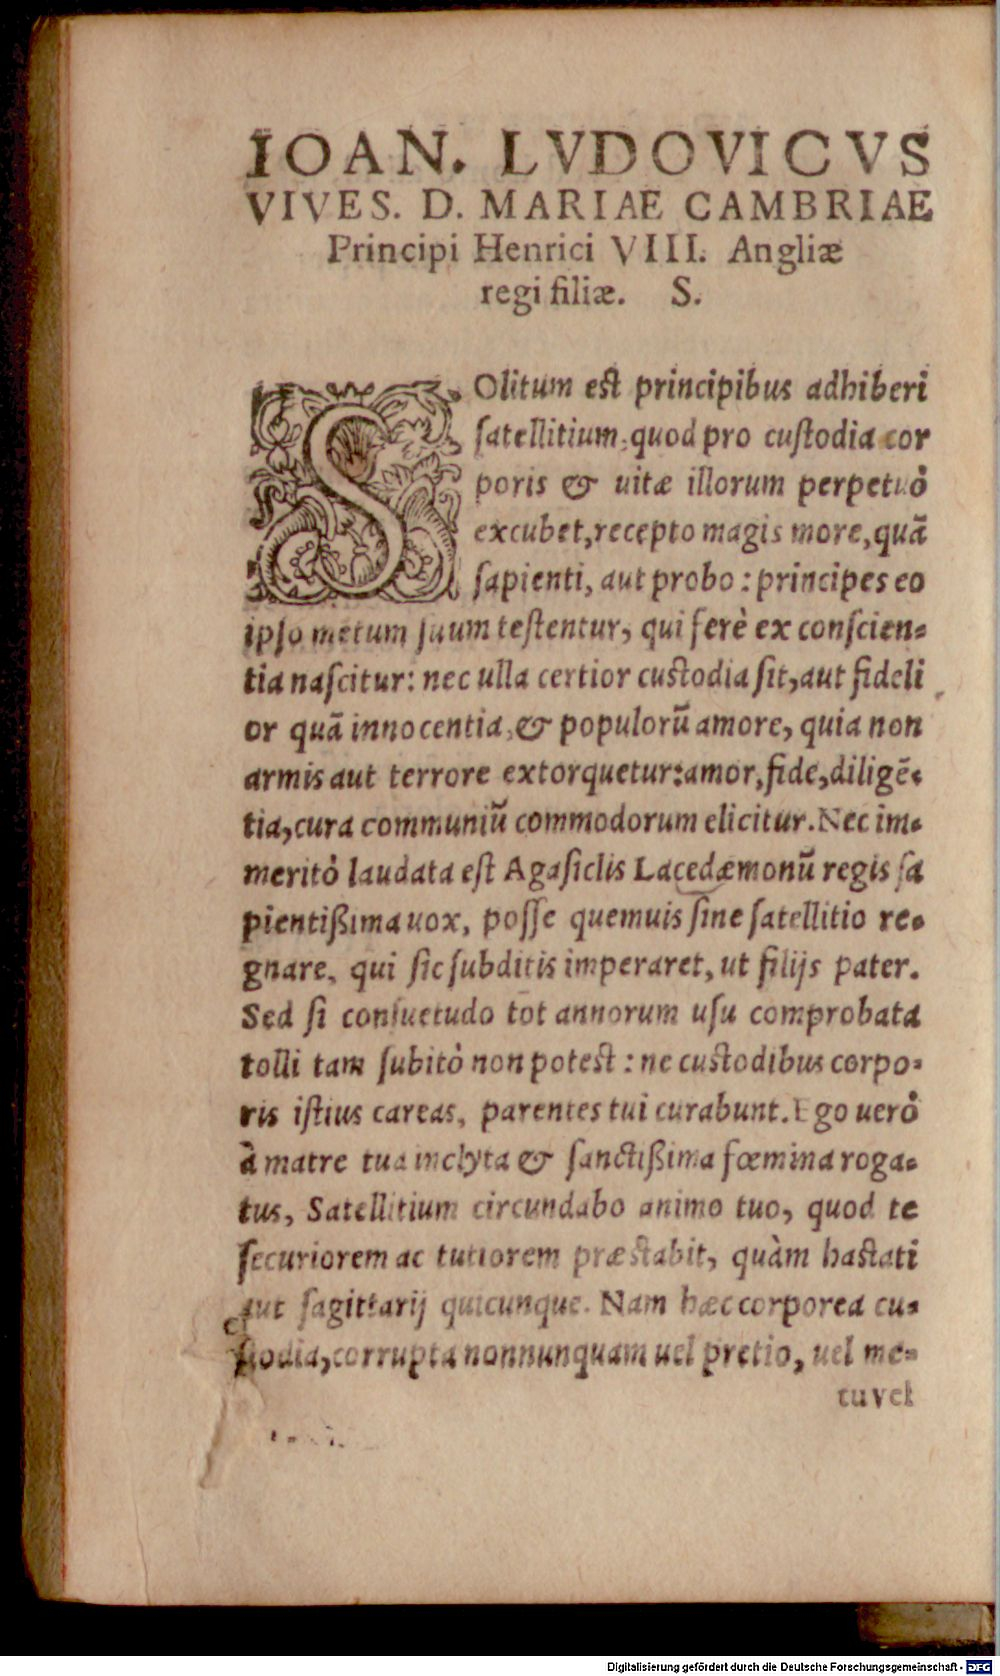 IOAN. LVDOVICVS
VIVES. D. MARIAE CAMBRIAE
Principi Henrici VIII. Angliæ
regi filiæ. S.
SOlitum est principibus adhiberi
ſatellitium, quod pro cuſtodia cor
poris & uitæ illorum perpetuò
excubet, recepto magis more, quā
ſapienti, aut probo: principes eo
ipſo metum ſuum teſtentur, qui ferè ex conſcien-
tia naſcitur: nec ulla certior cuſtodia ſit, aut fideli
or quā innocentia, & populorū amore, quia non
armis aut terrore extorquetur: amor, fide, diligē-
tia, cura communiū commodorum elicitur. Nec im-
meritò laudata eſt Agaſiclis Lacedæmonū regis ſa
pientißima uox, poſſe quemuis ſine ſatellitio re-
gnare, qui ſic ſubditis imperaret, ut filijs pater.
Sed ſi conſuetudo tot annorum uſu comprobata
tolli tam ſubitò non poteſt: ne cuſtodibus corpo-
ris iſtius careas, parentes tui curabunt. Ego uerò
à matre tua inclyta & ſanctißima fœmina roga-
tus, Satellitium circundabo animo tuo, quod te
ſecuriorem ac tutiorem præſtabit, quàm haſtati
aut ſagittarij quicunque. Nam hæc corporea cu-
ſtodia, corrupta nonnunquam uel pretio, uel me-
tu vel
Digitalisierung gefördert durch die Deutsche Forschungsgemeinschaft - DFG